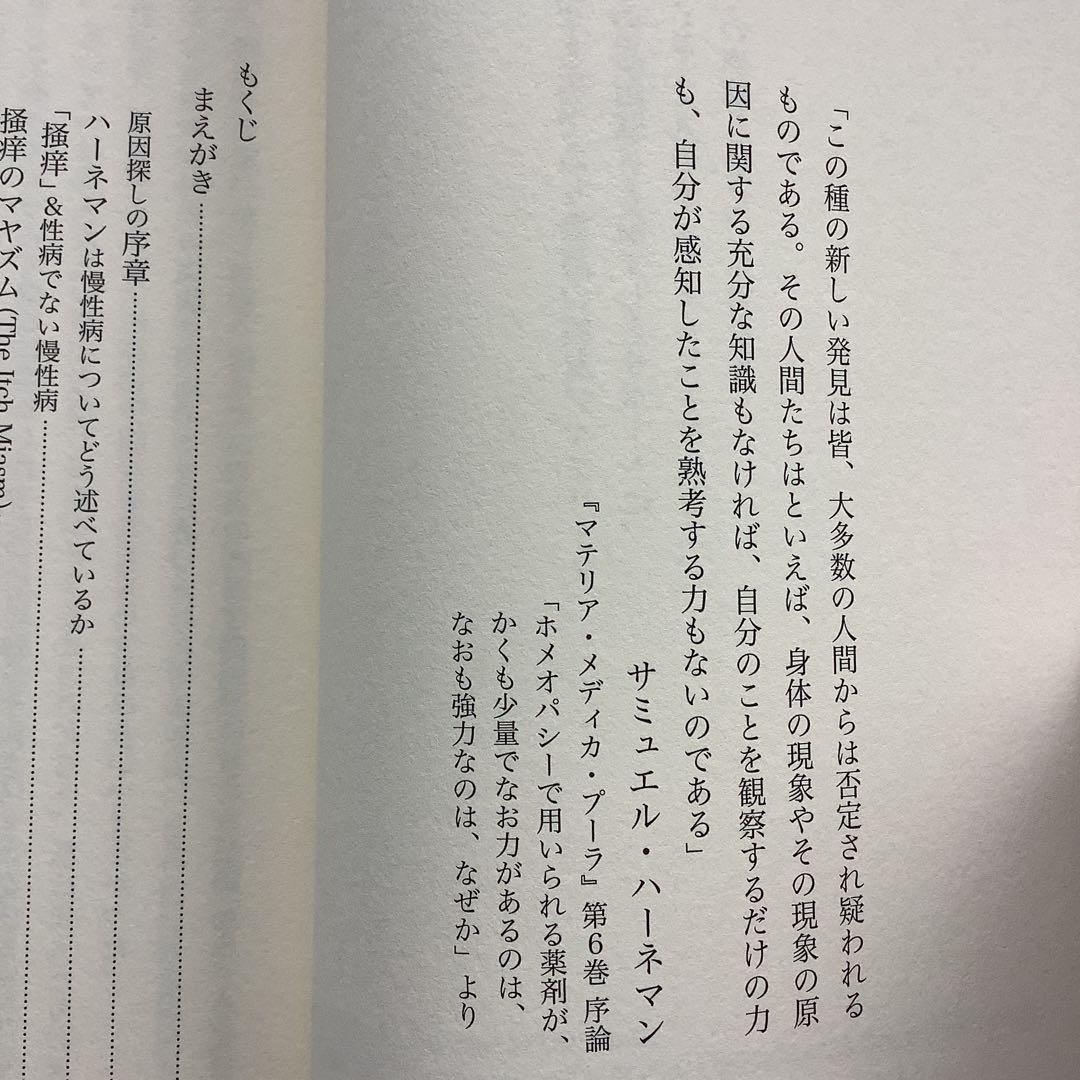 「この種の新しい発見は皆、大多数の人間からは否定され疑われる
ものである。その人間たちはといえば、身体の現象やその現象の原
因に関する充分な知識もなければ、自分のことを観察するだけの力
も、自分が感知したことを熟考する力もないのである」
サミュエル・ハーネマン
『マテリア・メディカ・プーラ』第6巻 序論
「ホメオパシーで用いられる薬剤が、
かくも少量でなお力があるのは、
なおも強力なのは、なぜか」より
もくじ
まえがき
原因探しの序章
ハーネマンは慢性病についてどう述べているか
「掻痒」&性病でない慢性病
掻痒のマヤズム(The Itch Miasm)